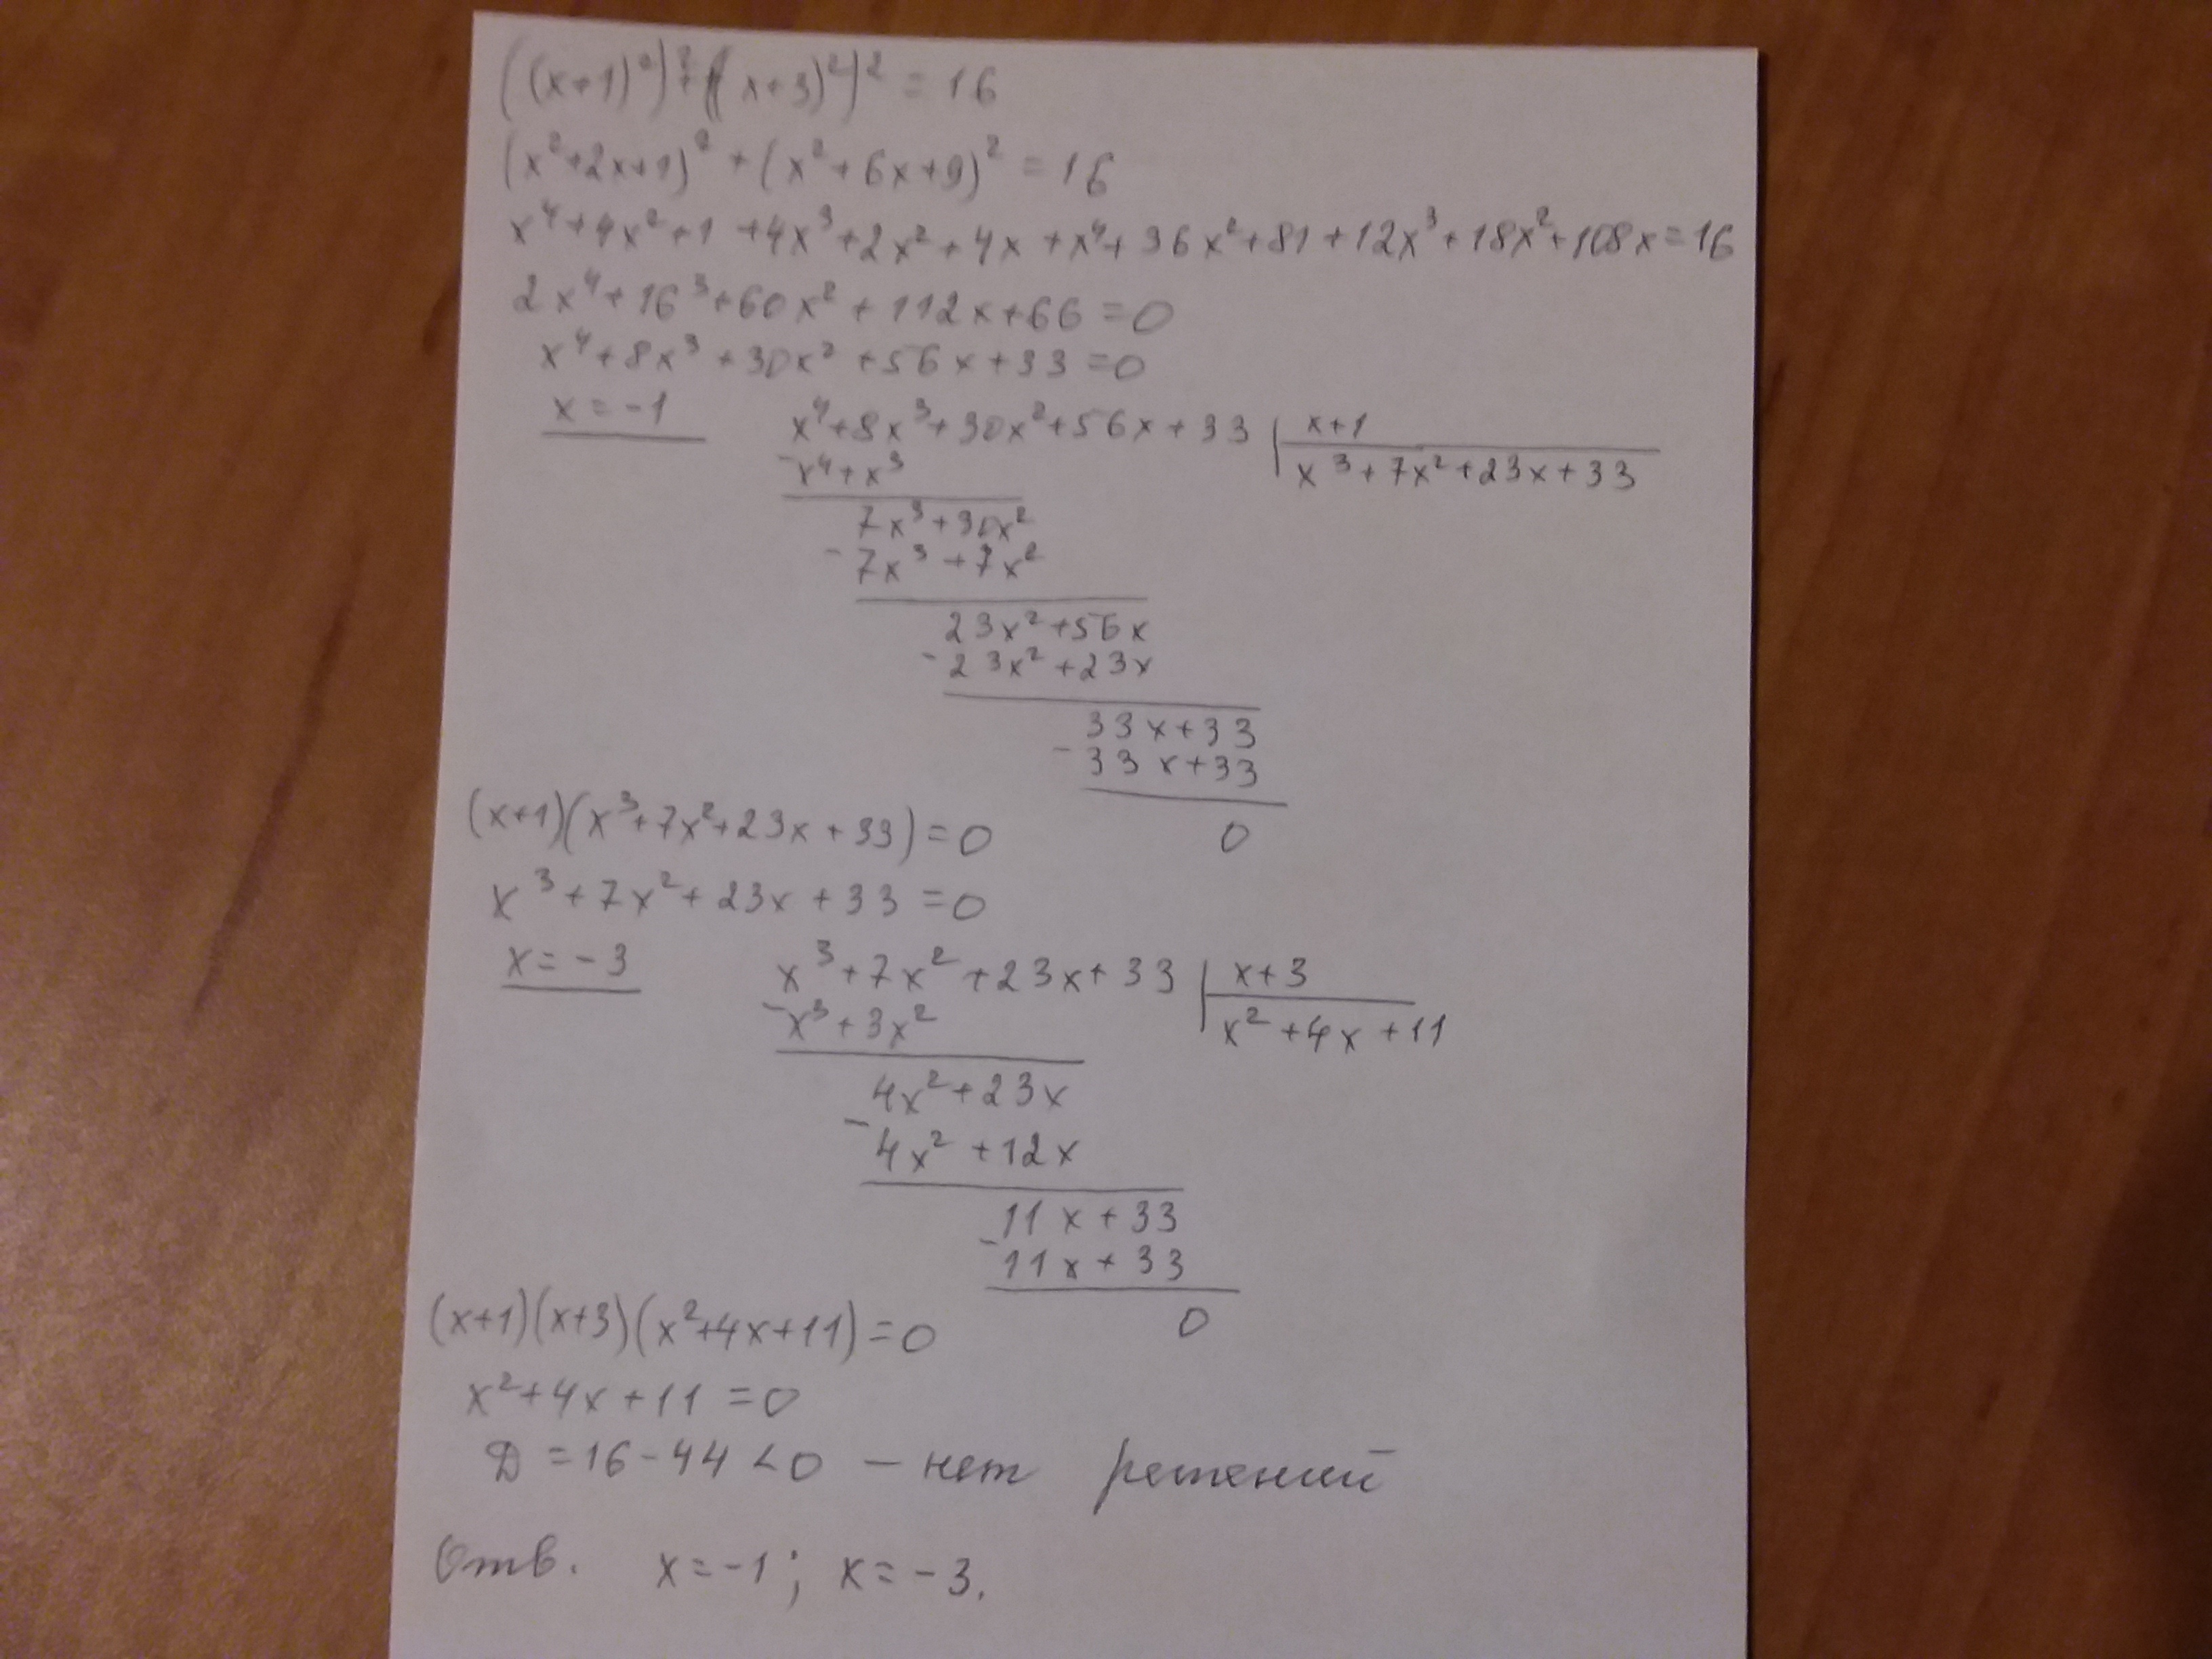 ((x+1)²)²+((x+3)²)² = 16
(x²+2x+1)² + (x²+6x+9)² = 16
x⁴+4x²+1 +4x³+2x²+4x +x⁴+36x²+81+12x³+18x²+108x=16
2x⁴+16³+60x²+112x+66=0
x⁴+8x³+30x²+56x+33=0
x=-1
x⁴+8x³+30x²+56x+33 | x+1
x³+7x²+23x+33
-x⁴+x³
7x³+30x²
-7x³+7x²
23x²+56x
-23x²+23x
33x+33
-33x+33
0
(x+1)(x³+7x²+23x+33)=0
x³+7x²+23x+33=0
x=-3
x³+7x²+23x+33 | x+3
x²+4x+11
-x³+3x²
4x²+23x
-4x²+12x
11x+33
-11x+33
0
(x+1)(x+3)(x²+4x+11)=0
x²+4x+11=0
D=16-44<0 - нет решений
Отв. x=-1; x=-3.